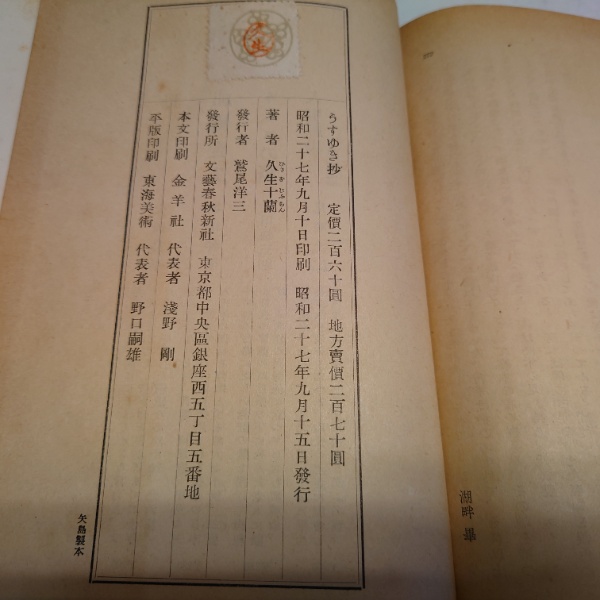 湖畔 畢
うすゆき抄 定價二百六十圓 地方賣價二百七十圓
昭和二十七年九月十日印刷 昭和二十七年九月十五日發行
著者 久生十蘭
ひさをじふらん
發行者 鷲尾洋三
發行所 文藝春秋新社 東京都中央區銀座西五丁目五番地
本文印刷 金羊社 代表者 淺野剛
平版印刷 東海美術 代表者 野口嗣雄
矢島製本